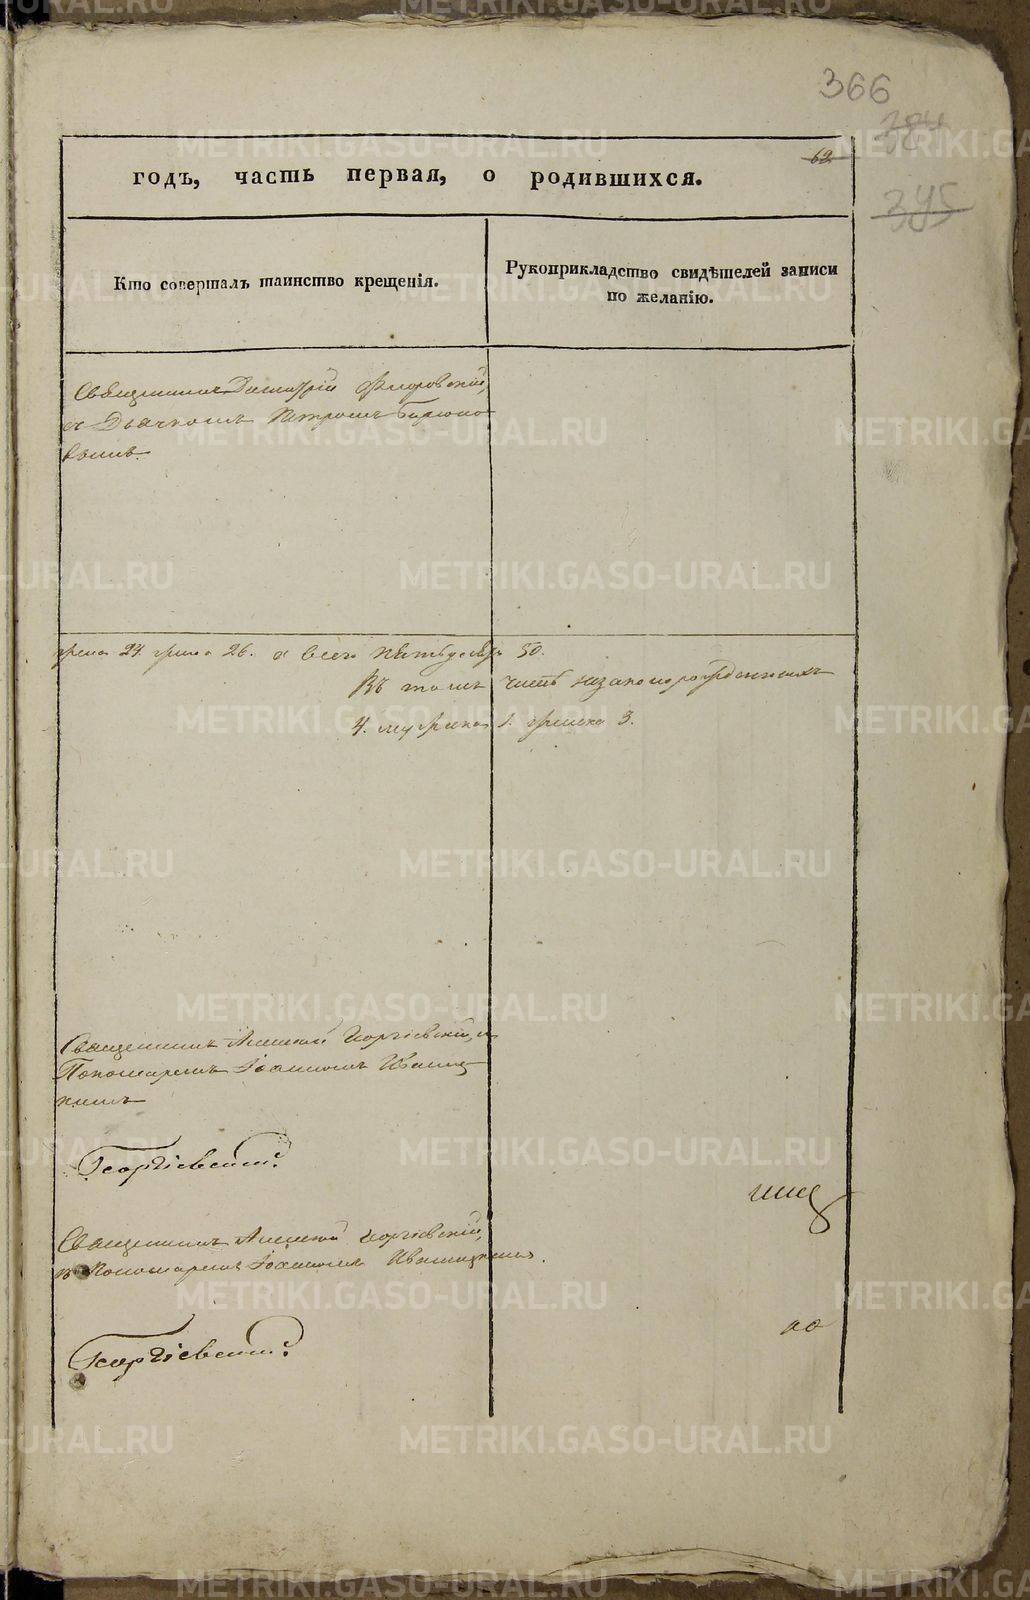 366
384
62.
345
годъ, часть первая, о родившихся.
Кто совершалъ таинство крещенія.
Рукоприкладство свидѣтелей записи
по желанію.
Священникъ Димитрій
съ Дьячкомъ Петромъ
вымъ.
24. 26. а всего пятьдесятъ 50.
Въ томъ числѣ незаконорожденныхъ
4. мужеска 1. женска 3.
Священникъ Алексій Георгіевскій, съ
Пономаремъ Іоанномъ
кимъ
Георгіевский.
Священникъ Алексій Георгіевскій,
съ Пономаремъ Іоанномъ
Георгіевский.
METRIKI.GASO-URAL.RU